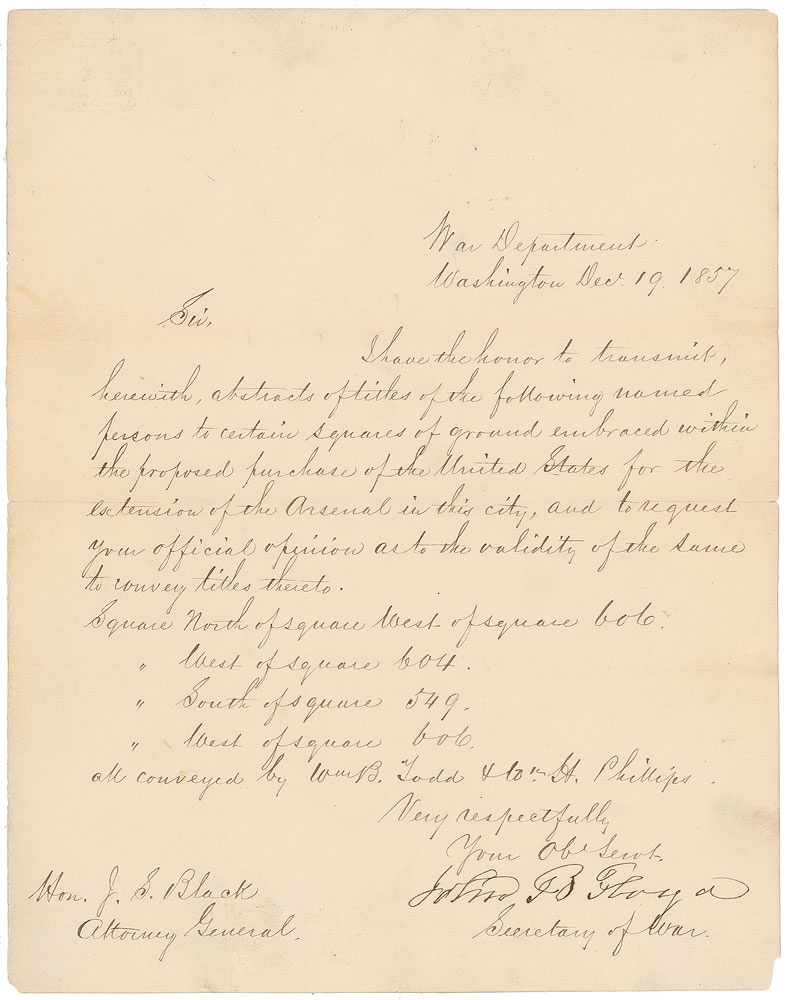 War Department.
Washington Decr. 19. 1857
Sir,
I have the honor to transmit,
herewith, abstracts of titles of the following named
persons to certain squares of ground embraced within
the proposed purchase of the United States for the
extension of the Arsenal in this city, and to request
your official opinion as to the validity of the same
to convey titles thereto.
Square North of square West of square 606.
" West of square 604.
" South of square 549.
" West of square 606.
all conveyed by Wm B. Todd & Wm H. Phillips.
Very respectfully
Your Obt Servt.
John B Floyd
Secretary of War.
Hon. J. S. Black
Attorney General.